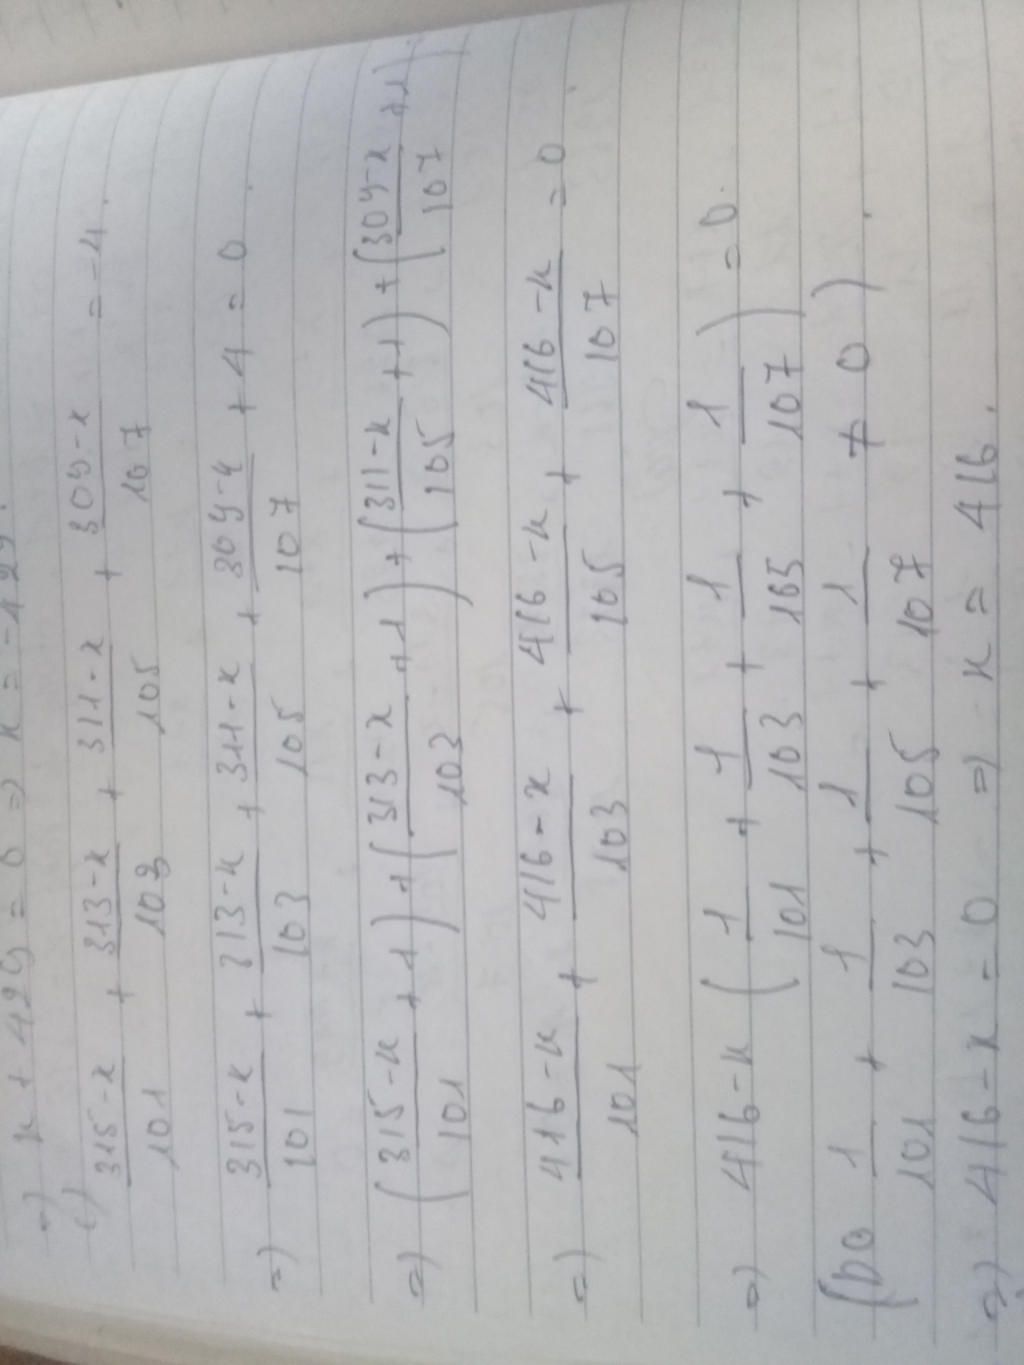 =) x + 429 = 0 => x = -429.
c) 315-x/101 + 313-x/103 + 311-x/105 + 309-x/107 = -4.
=) 315-x/101 + 313-x/103 + 311-x/105 + 309-x/107 + 4 = 0.
=) (315-x/101 + 1) + (313-x/103 + 1) + (311-x/105 + 1) + (309-x/107 + 1)
=) 416-x/101 + 416-x/103 + 416-x/105 + 416-x/107 = 0.
=) 416-x (1/101 + 1/103 + 1/105 + 1/107) = 0.
(Do 1/101 + 1/103 + 1/105 + 1/107 ≠ 0).
=) 416-x = 0 => x = 416.